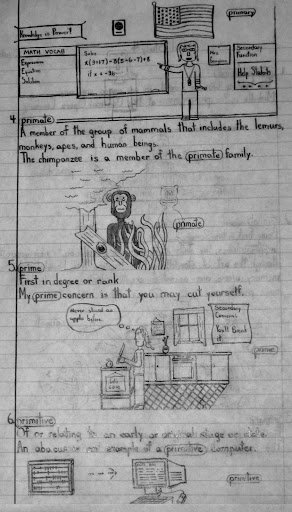 primary
Knowledge is Power!
MATH VOCAB
Expression
Equation
Solution
Solve
if x = -3
Mrs.
Secondary
Function
Help Students
4. primate
A member of the group of mammals that includes the lemurs,
monkeys, apes, and human beings.
The chimpanzee is a member of the primate family.
primate
5. prime
First in degree or rank
My prime concern is that you may cut yourself.
Never sliced an
apple before.
Secondary
Concerns:
prime
6. primitive
Of or relating to an early or original stage or state.
An abacus is one example of a primitive computer.
primitive